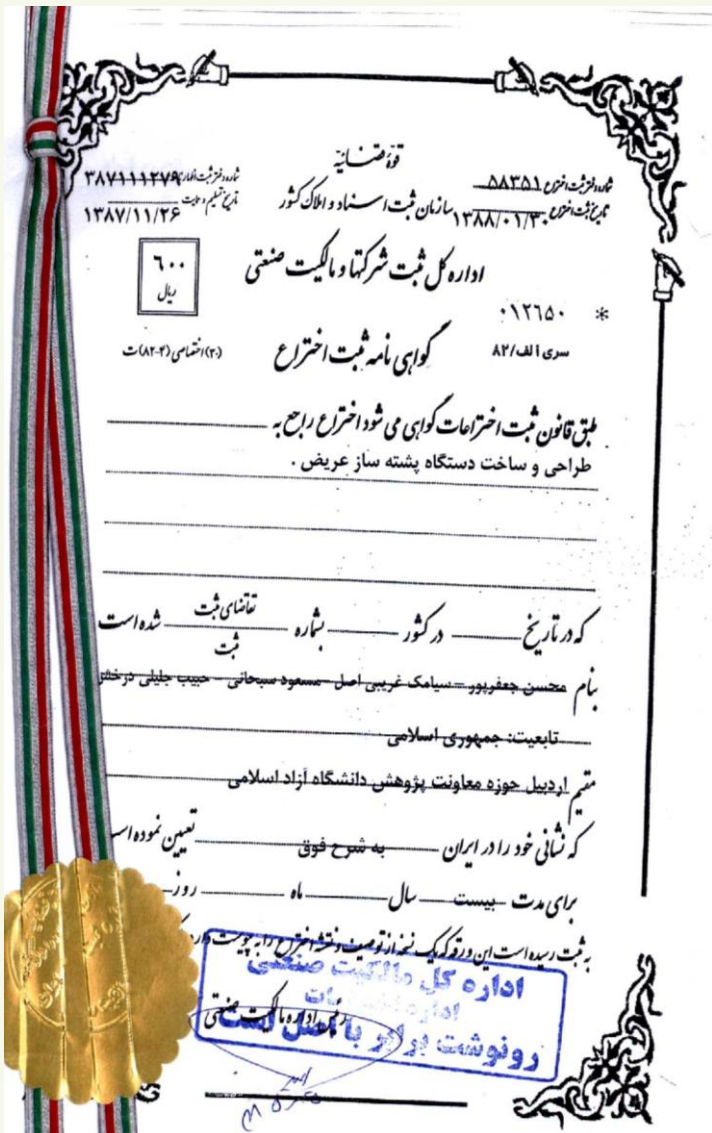 قوهٔ قضائیه
شماره دفتر ثبت اختراع ۵۸۳۵۱
شماره دفتر ثبت اظهارنامه ۳۸۷۱۱۱۲۷۹
سازمان ثبت اسناد و املاک کشور
تاریخ ثبت اختراع ۱۳۸۸/۰۱/۳۰
تاریخ تسلیم و ۱۳۸۷/۱۱/۲۶
اداره کل ثبت شرکتها و مالکیت صنعتی
۶۰۰
ریال
* ۰۱۲۶۵۰
سری الف/۸۲
گواهی نامه ثبت اختراع
(۳۰) اختصاصی (۴-۸۲) ت
طبق قانون ثبت اختراعات گواهی می شود اختراع راجع به
طراحی و ساخت دستگاه پشته ساز عریض .
که در تاریخ در کشور بشماره تقاضای ثبت شده است
ثبت
بنام محسن جعفرپور - سیامک غریبی اصل - مسعود سبحانی - حبیب جلیلی درخش
تابعیت: جمهوری اسلامی
مقیم اردبیل حوزه معاونت پژوهش دانشگاه آزاد اسلامی
که نشانی خود را در ایران به شرح فوق تعیین نموده اس
برای مدت بیست سال ماه روز
به ثبت رسیده است این ورقه که یک نسخه از توصیف و نقشه اختراع را به پیوست دارد
اداره کل مالکیت صنعتی
رئیس اداره مالکیت صنعتی
رونوشت برابر با اصل است